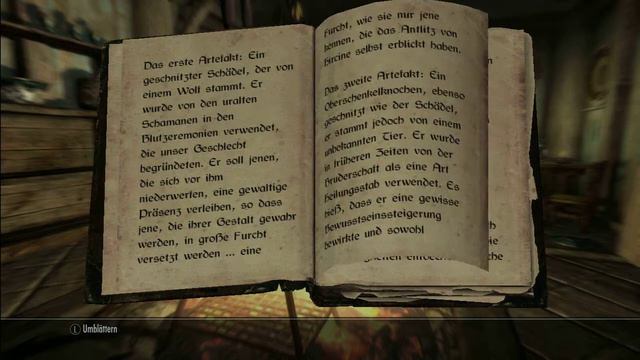 Das erste Artefakt: Ein
geschnitzter Schädel, der von
einem Wolf stammt. Er
wurde von den uralten
Schamanen in den
Blutzeremonien verwendet,
die unser Geschlecht
begründeten. Er soll jenen,
die sich vor ihm
niederwerfen, eine gewaltige
Präsenz verleihen, so dass
jene, die ihrer Gestalt gewahr
werden, in große Furcht
versetzt werden ... eine
Furcht, wie sie nur jene
kennen, die das Antlitz von
Hircine selbst erblickt haben.
Das zweite Artefakt: Ein
Oberschenkelknochen, ebenso
geschnitzt wie der Schädel,
er stammt jedoch von einem
unbekannten Tier. Er wurde
in früheren Zeiten von der
Bruderschaft als eine Art
Heilungsstab verwendet. Es
hieß, dass er eine gewisse
Bewusstseinssteigerung
bewirkte und sowohl
L Umblättern